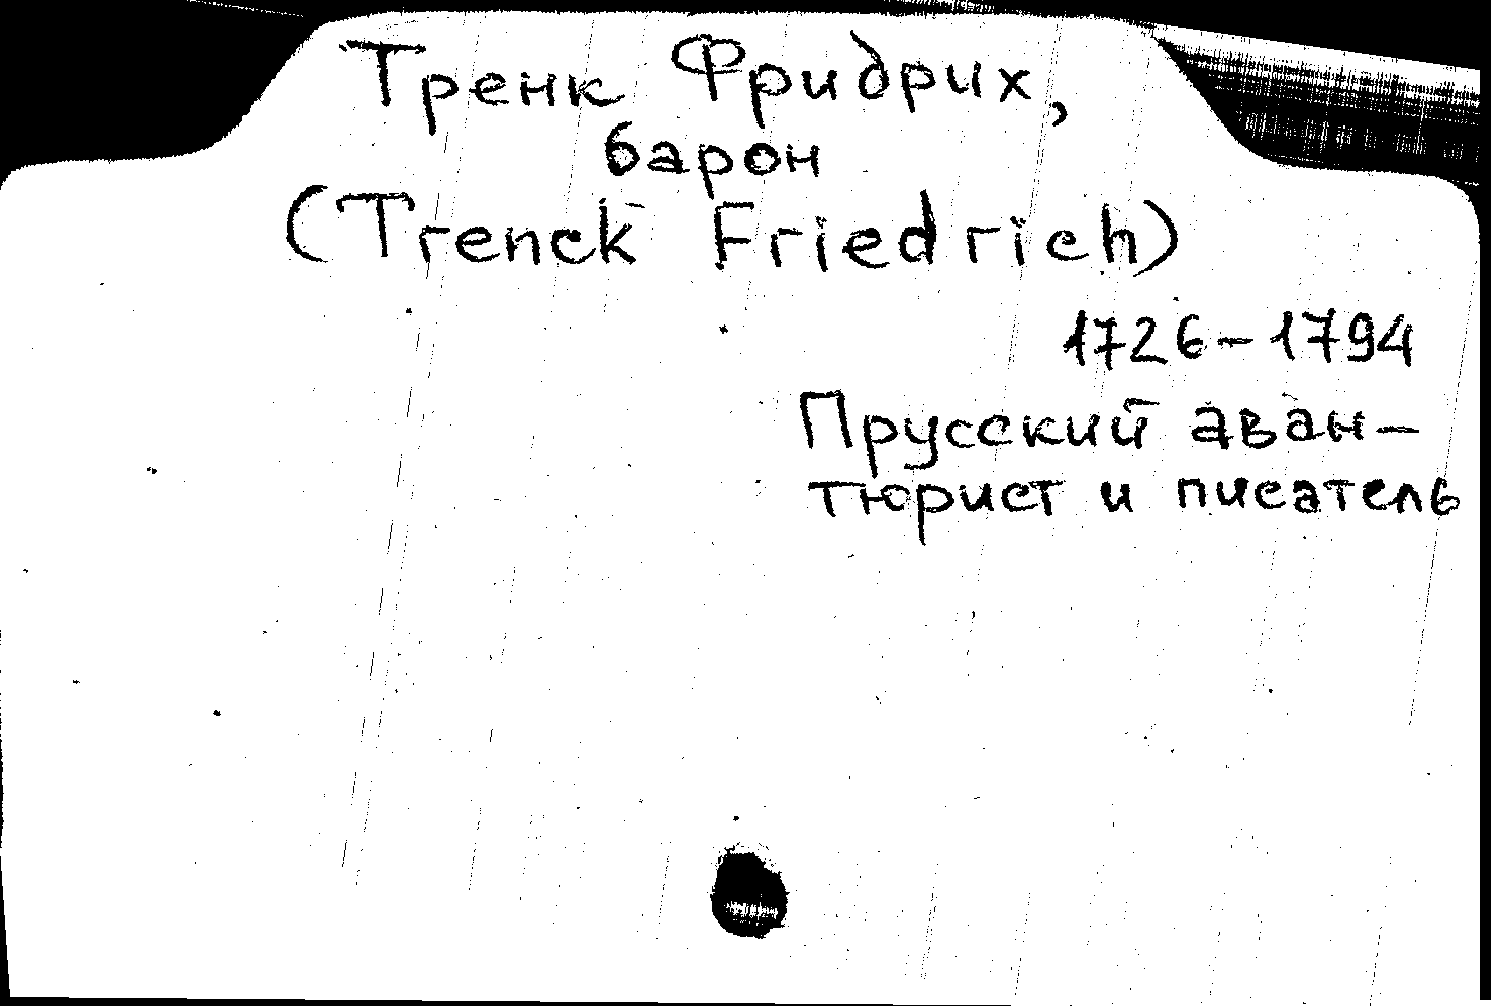 Тренк Фридрих,
барон
(Trenck Friedrich)
1726-1794
Прусский аван-
тюрист и писатель